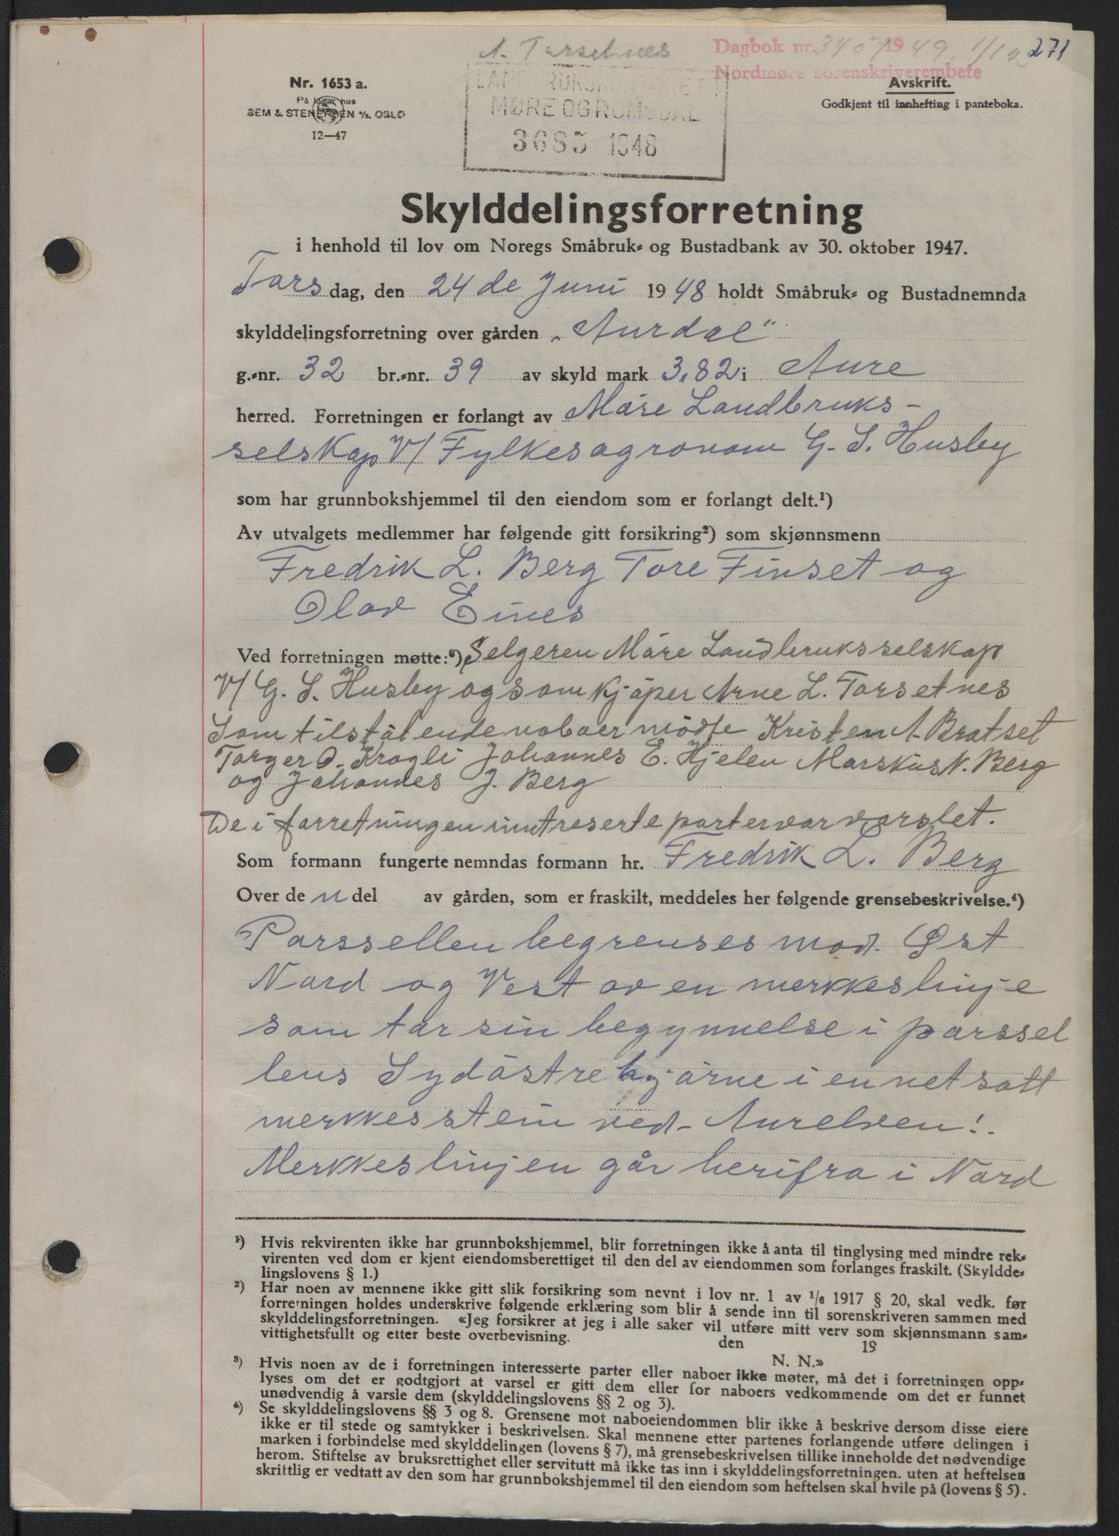 A. Torsetnes
Dagbok nr. 3407 1949, 1/12 271
Nordmøre sorenskriverembete
Nr. 1653 a.
På lager hos
SEM & STENERSEN A/S. OSLO
12—47
LANDBRUKSKONTORET I
MØRE OG ROMSDAL
3685 1948
Avskrift.
Godkjent til innhefting i panteboka.
Skylddelingsforretning
i henhold til lov om Noregs Småbruk- og Bustadbank av 30. oktober 1947.
Torsdag, den 24 de Juni 1948 holdt Småbruk- og Bustadnemnda
skylddelingsforretning over gården „Aurdal"
g.-nr. 32 br.-nr. 39 av skyld mark 3,82 i Aure
herred. Forretningen er forlangt av Møre Landbruks-
selskap V/ Fylkesagronom G. S. Husby
som har grunnbokshjemmel til den eiendom som er forlangt delt.¹)
Av utvalgets medlemmer har følgende gitt forsikring²) som skjønnsmenn
Fredrik L. Berg Tore Finset og
Olav Eines
Ved forretningen møtte:³) Selgeren Møre Landbruksselskap
V/ G. S. Husby og som kjøper Arne L. Torsetnes
Som tilstøtende naboer mødte Kristen A. Bratset
Torger O. Krogli Johannes E. Hjelen Marskus N. Berg
og Johannes J. Berg
De i forretningen inntreserte parter var varslet.
Som formann fungerte nemndas formann hr. Fredrik L. Berg
Over de n del av gården, som er fraskilt, meddeles her følgende grensebeskrivelse.⁴)
Parssellen begrenses mod. Øst
Nord og Vest av en merkkeslinje
som tar sin begynnelse i parssel
lens Sydøstre hjørne i en net satt
merkkesstein ved- Aurelven!.
Merkkeslinjen går herifra i Nord
¹) Hvis rekvirenten ikke har grunnbokshjemmel, blir forretningen ikke å anta til tinglysing med mindre rek-
virenten ved dom er kjent eiendomsberettiget til den del av eiendommen som forlanges fraskilt. (Skyldde-
lingslovens § 1.)
²) Har noen av mennene ikke gitt slik forsikring som nevnt i lov nr. 1 av ¹/₆ 1917 § 20, skal vedk. før
forretningen holdes underskrive følgende erklæring som blir å sende inn til sorenskriveren sammen med
skylddelingsforretningen. «Jeg forsikrer at jeg i alle saker vil utføre mitt verv som skjønnsmann sam-
vittighetsfullt og etter beste overbevisning.
den 19
N. N.»
³) Hvis noen av de i forretningen interesserte parter eller naboer ikke møter, må det i forretningen opp-
lyses om det er godtgjort at varsel er gitt dem eller for naboers vedkommende om det er funnet
unødvendig å varsle dem (skylddelingslovens §§ 2 og 3).
⁴) Se skylddelingslovens §§ 3 og 8. Grensene mot naboeiendommen blir ikke å beskrive dersom disse eiere
ikke er til stede og samtykker i beskrivelsen. Skal mennene etter partenes forlangende utføre delingen i
marken i forbindelse med skylddelingen (lovens § 7), må grensebeskrivelsen tillike inneholde det nødvendige
herom. Stiftelse av bruksrettighet eller servitutt må ikke tas inn i skylddelingsforretningen. uten at heftelsen
skriftlig er vedtatt av den som har grunnbokshjemmel til den eiendom som heftelsen skal hvile på (lovens § 5).